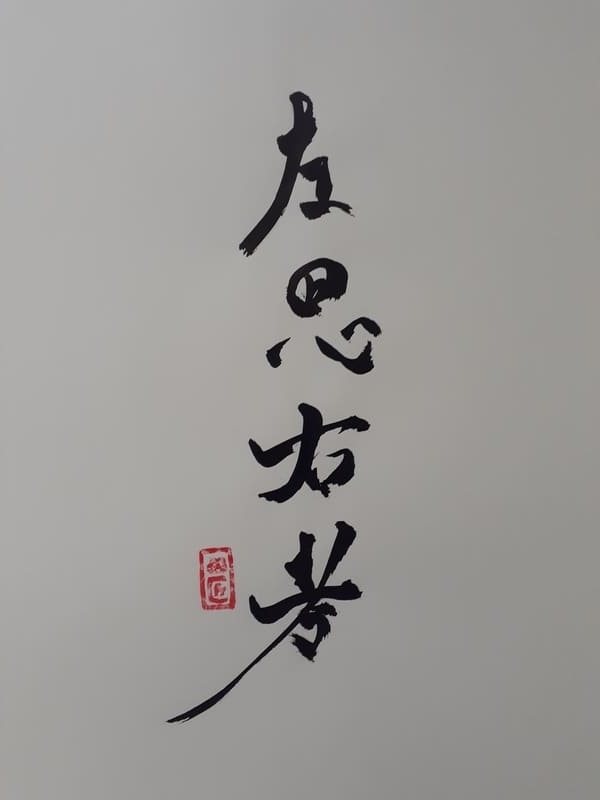 左思右考